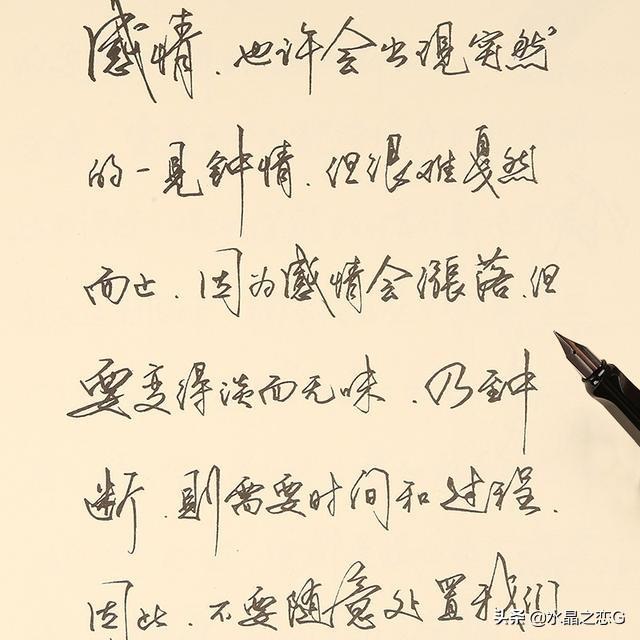 感情.也许会出现突然
的一見钟情.但很难戛然
而止.因为感情会漲落.但
要变得淡而无味.乃至中
断.则需要时间和过程.
因此.不要随意处置我们
头条@水晶之恋G